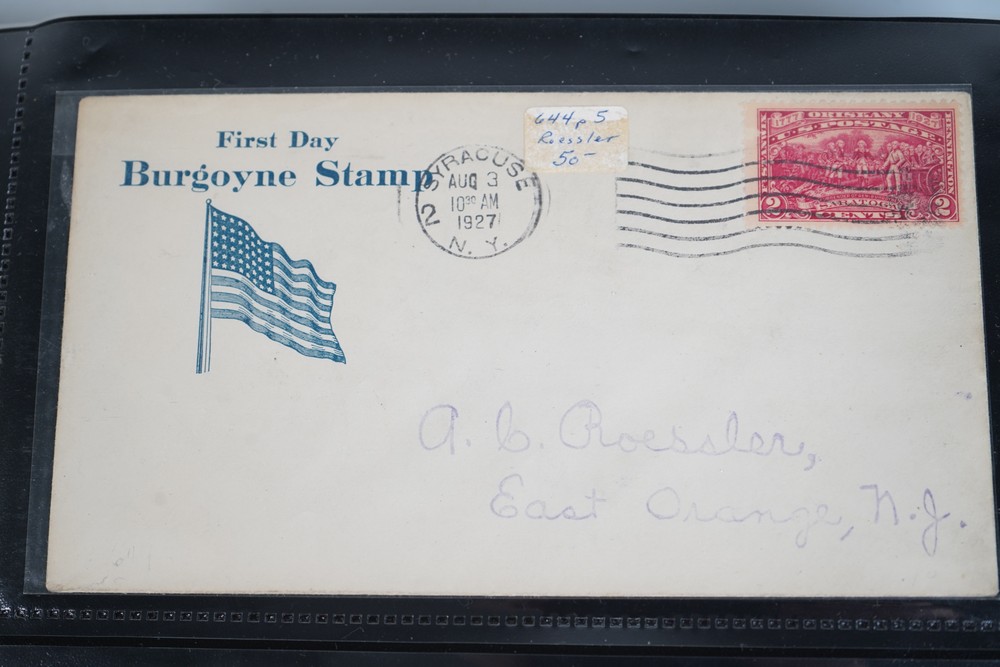 First Day
Burgoyne Stamp
644p5
Roessler
50-
SYRACUSE
AUG 3
10 30 AM
1927
N. Y.
2
1777 ORISKANY 1927
U.S. POSTAGE
BENNINGTON
SARATOGA
2 CENTS 2
A. C. Roessler,
East Orange, N.J.